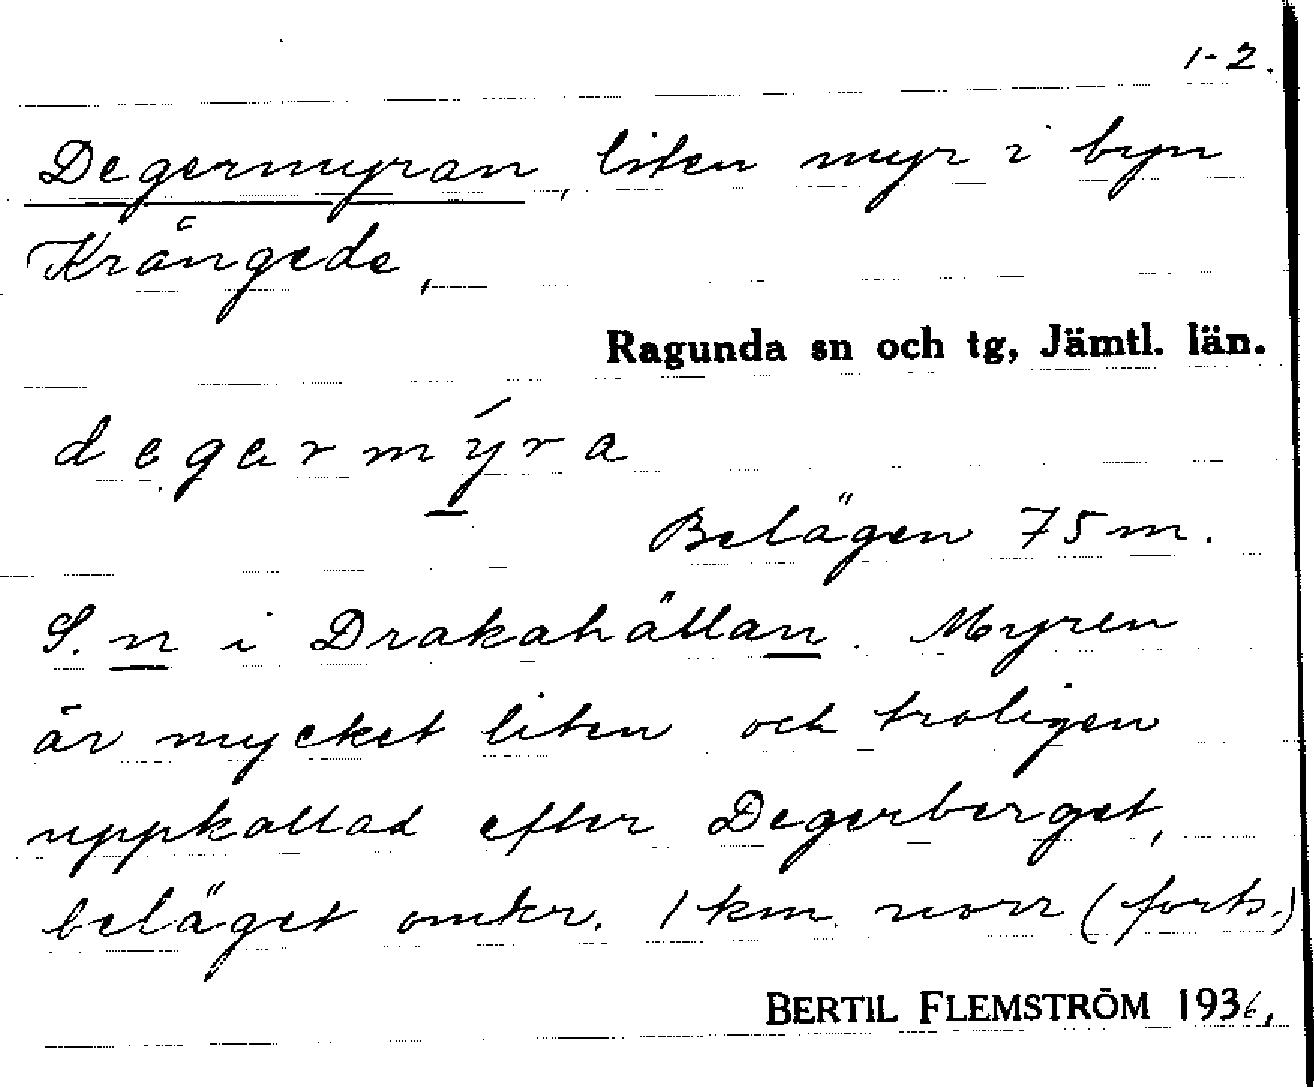 1-2.
Degermyran, liten myr i byn
Krångede,
Ragunda sn och tg, Jämtl. län.
degermýra
Belägen 75 m.
S. n i Drakahällan. Myren
är mycket liten och troligen
uppkallad efter Degerberget,
beläget omkr. 1 km norr (forts.)
BERTIL FLEMSTRÖM 1936,